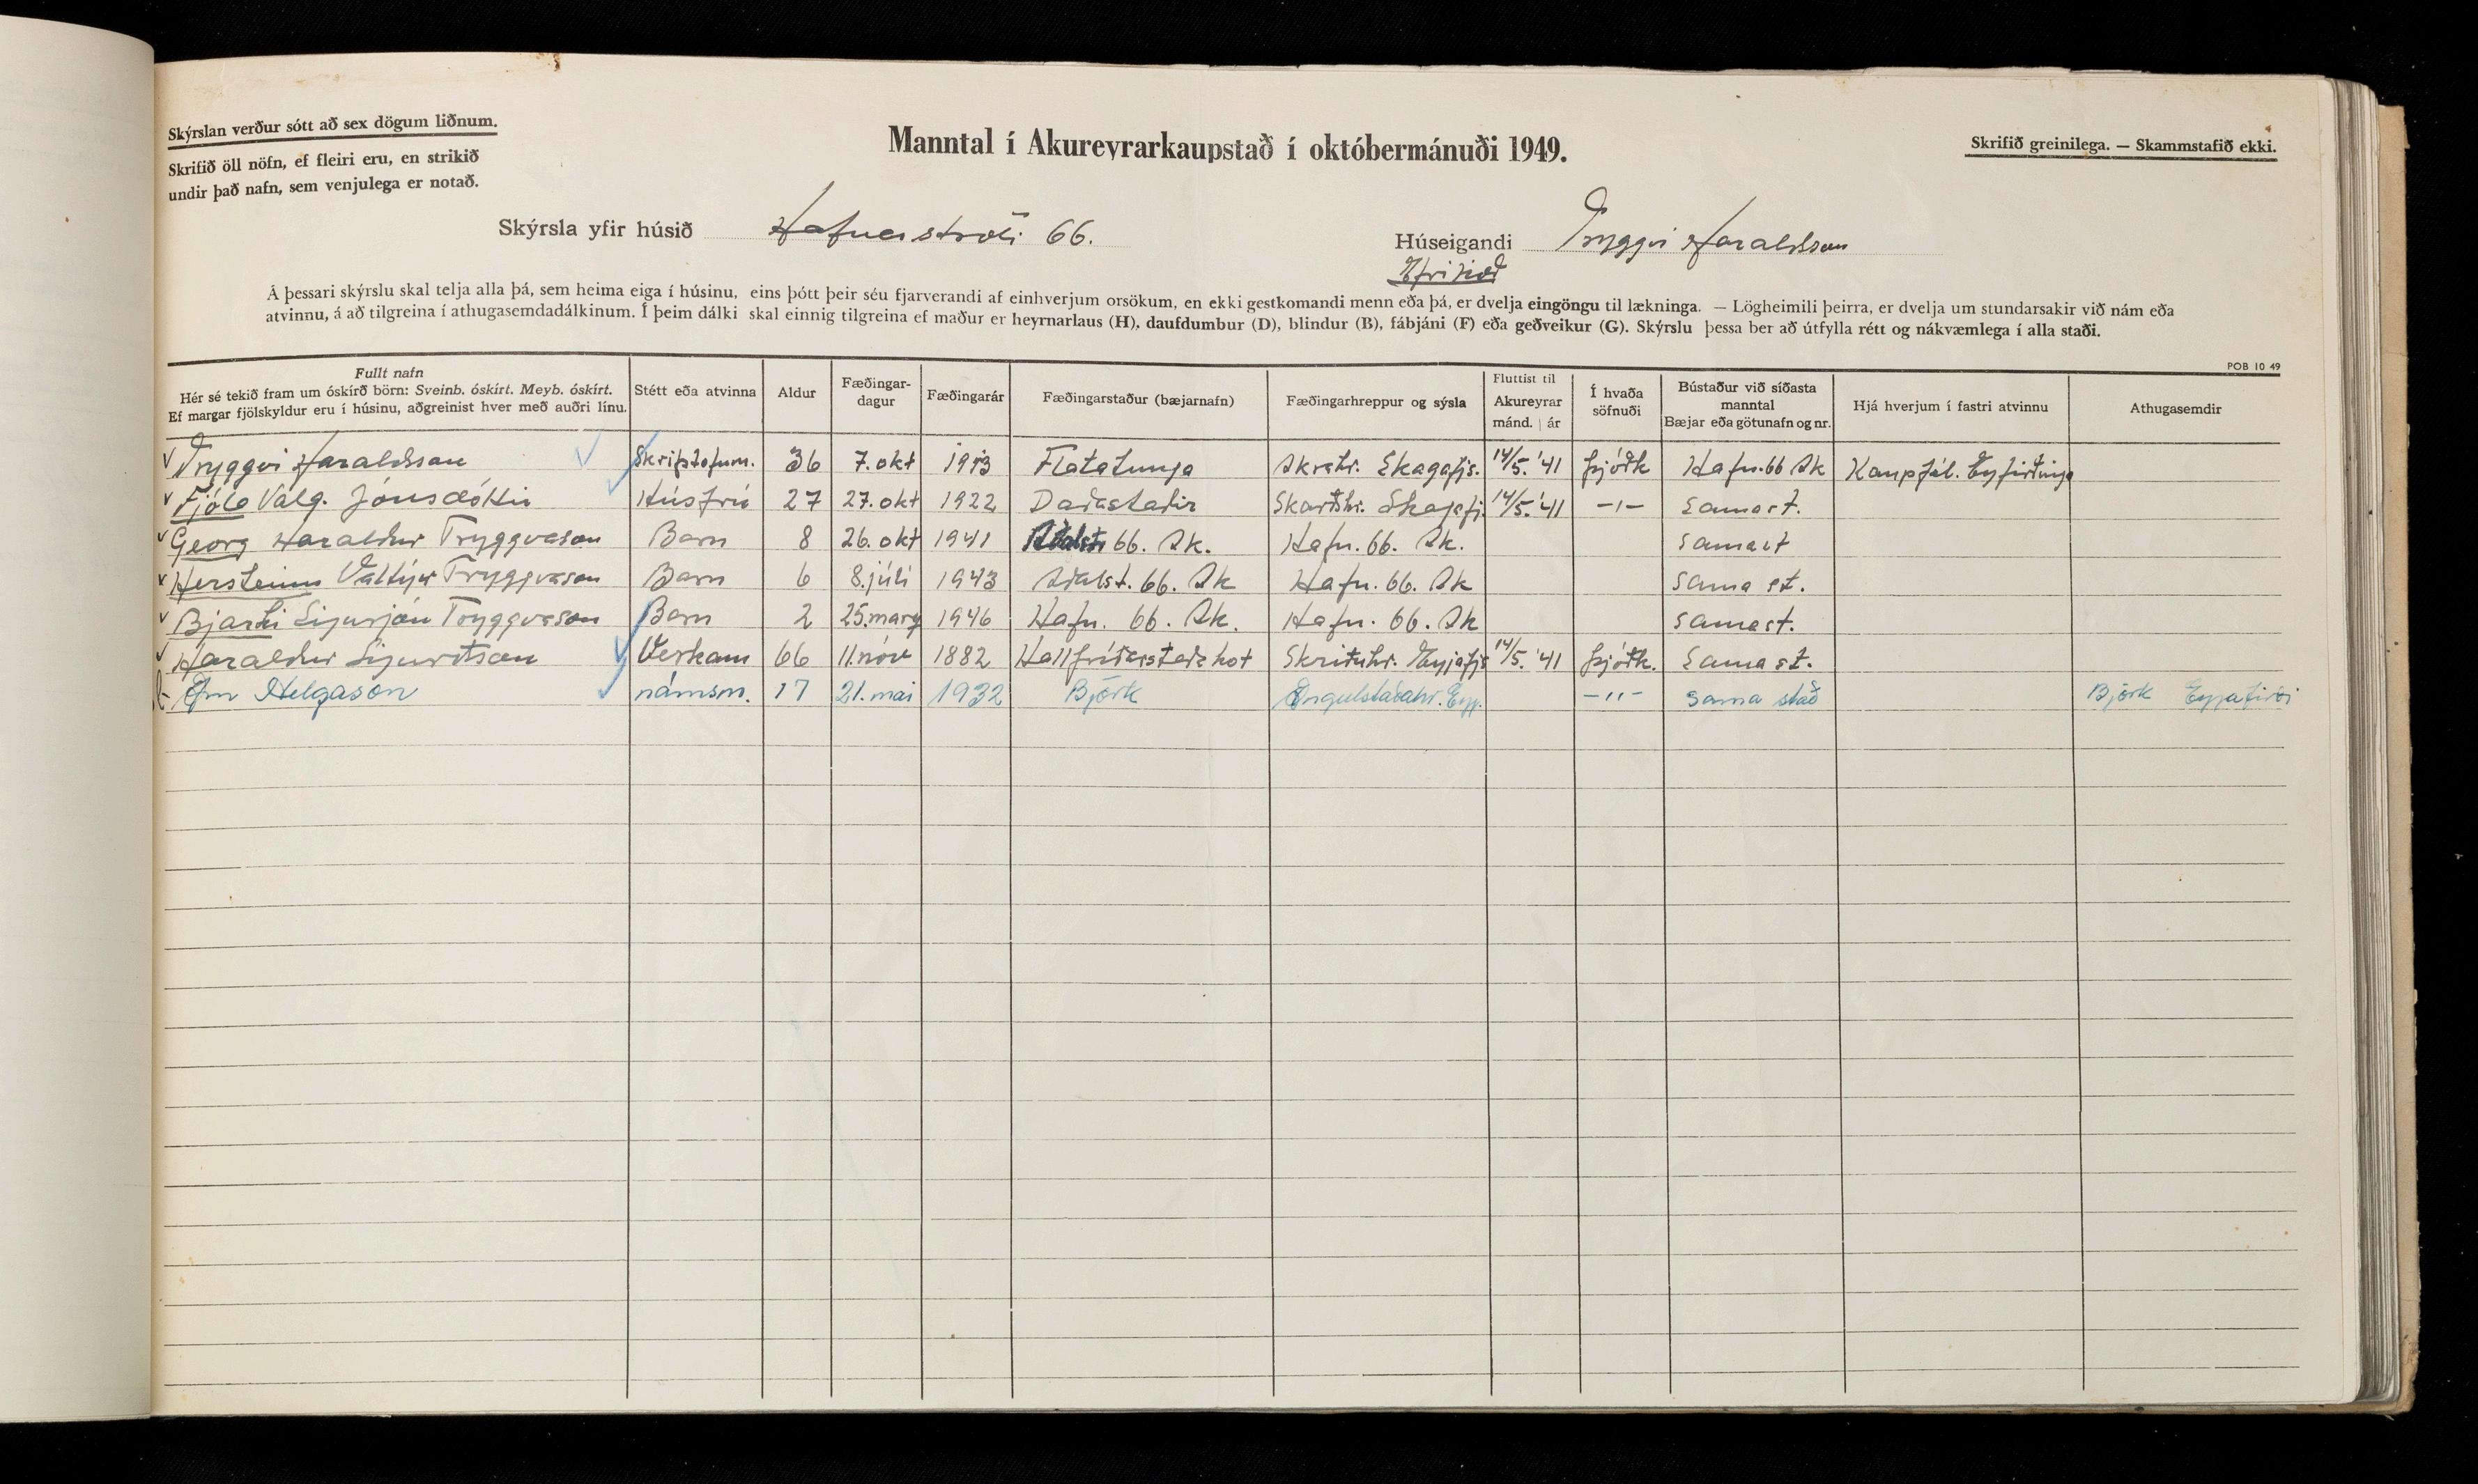 Skýrslan verður sótt að sex dögum liðnum.
Skrifið öll nöfn, ef fleiri eru, en strikið
undir það nafn, sem venjulega er notað.
Manntal í Akureyrarkaupstað í októbermánuði 1949.
Skrifið greinilega. — Skammstafið ekki.
Skýrsla yfir húsið Hafnarstræti 66.
Húseigandi Tryggvi Haraldsson
Efri hæð
Á þessari skýrslu skal telja alla þá, sem heima eiga í húsinu, eins þótt þeir séu fjarverandi af einhverjum orsökum, en ekki gestkomandi menn eða þá, er dvelja eingöngu til lækninga. — Lögheimili þeirra, er dvelja um stundarsakir við nám eða
atvinnu, á að tilgreina í athugasemdadálkinum. Í þeim dálki skal einnig tilgreina ef maður er heyrnarlaus (H), daufdumbur (D), blindur (B), fábjáni (F) eða geðveikur (G). Skýrslu þessa ber að útfylla rétt og nákvæmlega í alla staði.
POB 10 49
Fullt nafn
Hér sé tekið fram um óskírð börn: Sveinb. óskírt. Meyb. óskírt.
Ef margar fjölskyldur eru í húsinu, aðgreinist hver með auðri línu.
Stétt eða atvinna
Aldur
Fæðingar-
dagur
Fæðingarár
Fæðingarstaður (bæjarnafn)
Fæðingarhreppur og sýsla
Fluttist til
Akureyrar
mánd. | ár
Í hvaða
söfnuði
Bústaður við síðasta
manntal
Bæjar eða götunafn og nr.
Hjá hverjum í fastri atvinnu
Athugasemdir
Tryggvi Haraldsson Skriftofum. 36 7. okt 1913 Flatatunga Akrahr. Skagafjs. 14/5. '41 þjóðk Hafn. 66 Ak Kaupfél. Eyfirðinga
Fjóla Valg. Jónsdóttir Húsfrú 27 27. okt 1922 Daðastaðir Skarðshr. Skagafj. 14/5. '41 -"- Sama st.
Georg Haraldur Tryggvason Barn 8 26. okt 1941 66. Ak. Hafn. 66. Ak. sama st
Hersteinn Valtýr Tryggvason Barn 6 8. júlí 1943 Aðalst. 66. Ak Hafn. 66. Ak sama st.
Bjarki Sigurjón Tryggvason Barn 2 25. marz 1946 Hafn. 66. Ak. Hafn. 66. Ak sama st.
Haraldur Sigurðsson Verkam 66 11. nóv 1882 Hallfríðarstaðakot Skriðuhr. Eyjafjs 14/5. '41 þjóðk. Sama st.
Örn Helgason námsm. 17 21. mai 1932 Björk Öngulstaðahr. Eyj. -"- sama stað Björk Eyjafirði